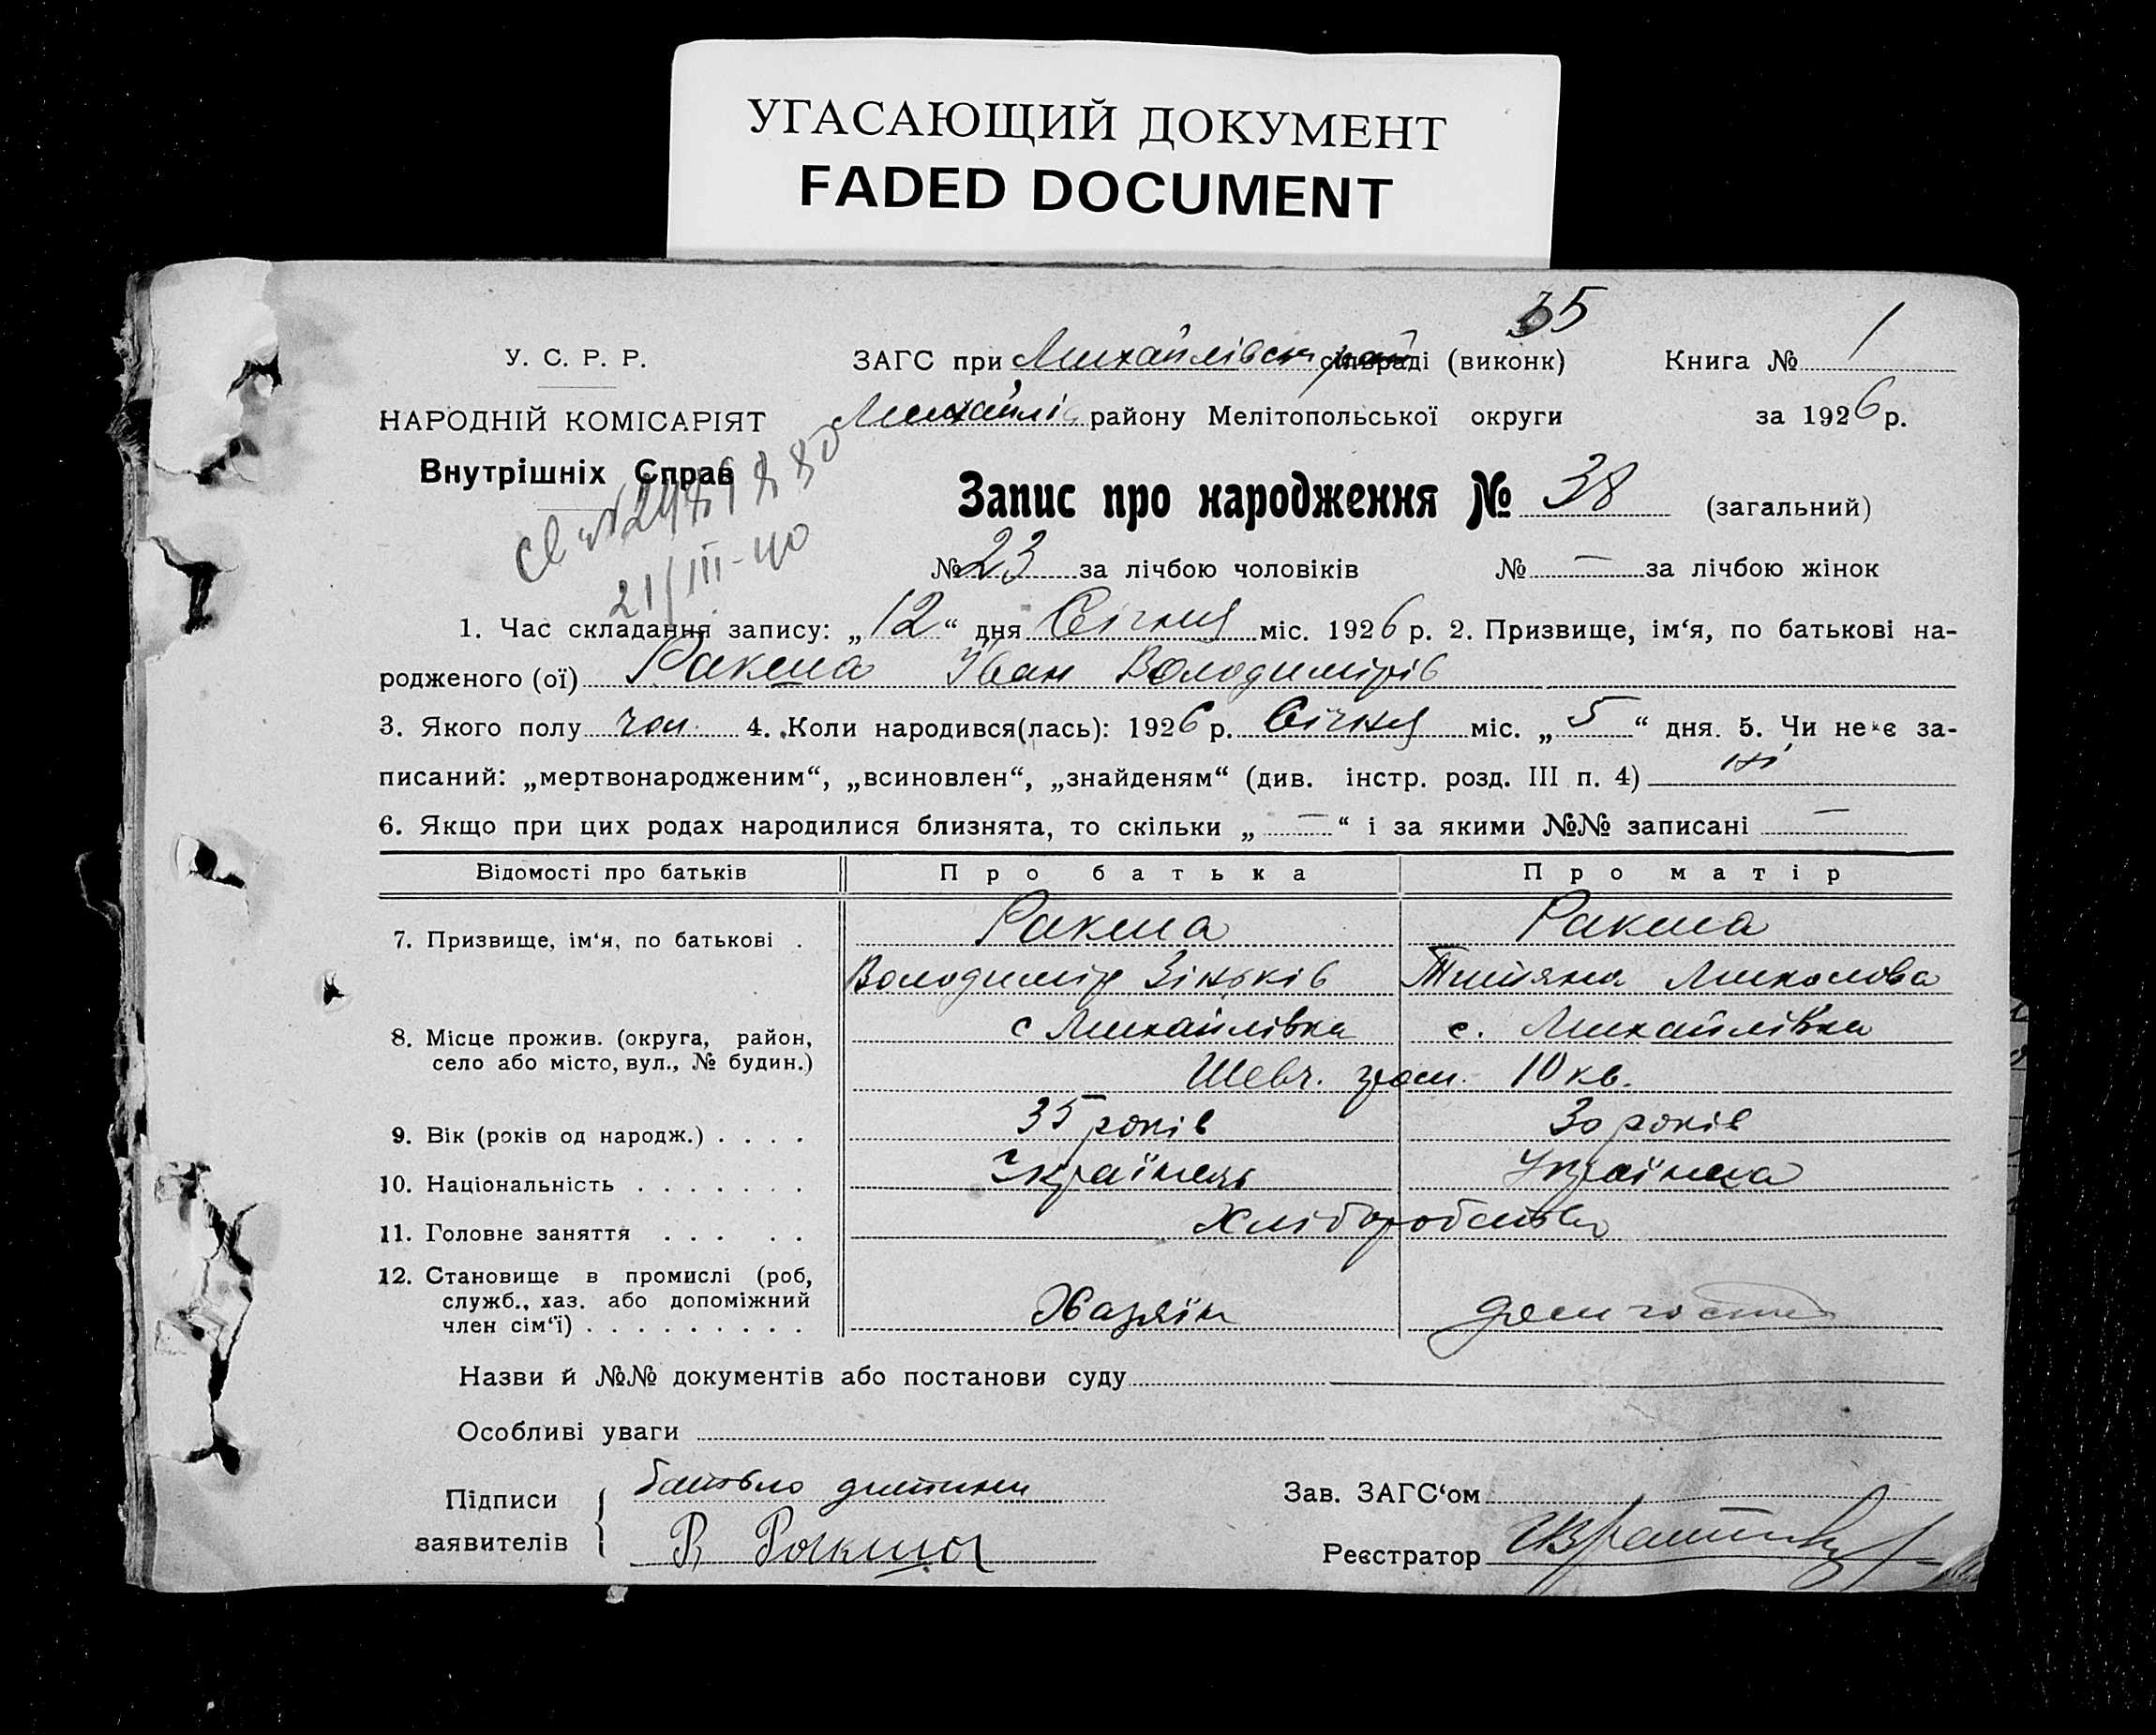 УГАСАЮЩИЙ ДОКУМЕНТ
FADED DOCUMENT
35
У. С. Р. Р. ЗАГС при Михайлівськ (виконк) Книга № 1
НАРОДНІЙ КОМІСАРІЯТ Михайлів району Мелітопольської округи за 1926 р.
Внутрішніх Справ
Запис про народження № 38 (загальний)
21/III-40
№ 23 за лічбою чоловіків № — за лічбою жінок
1. Час складання запису: „12“ дня Січня міс. 1926 р. 2. Призвище, ім‘я, по батькові на-
родженого (ої) Ракша Іван Володимірів
3. Якого полу чол. 4. Коли народився(лась): 1926 р. Січня міс. „5“ дня. 5. Чи не є за-
писаний: „мертвонародженим“, „всиновлен“, „знайденям“ (див. інстр. розд. III п. 4) ні
6. Якщо при цих родах народилися близнята, то скільки „—“ і за якими №№ записані —
Відомості про батьків Про батька Про матір
7. Призвище, ім‘я, по батькові . Ракша Ракша
Володимір Зіньків Титяна Миколова
8. Місце прожив. (округа, район, с Михайлівка с. Михайлівка
село або місто, вул., № будин.) Шевч. гром. 10 кв.
9. Вік (років од народж.) . . . . 35 років 30 років
10. Національність . . . . . . . Українець Українка
11. Головне заняття . . . . . Хліборобство
12. Становище в промислі (роб,
служб., хаз. або допоміжний
член сім‘ї) . . . . . . . . . Хазяїн
Назви й №№ документів або постанови суду
Особливі уваги
Підписи батько дитини Зав. ЗАГС‘ом
заявителів В Ракша Реєстратор